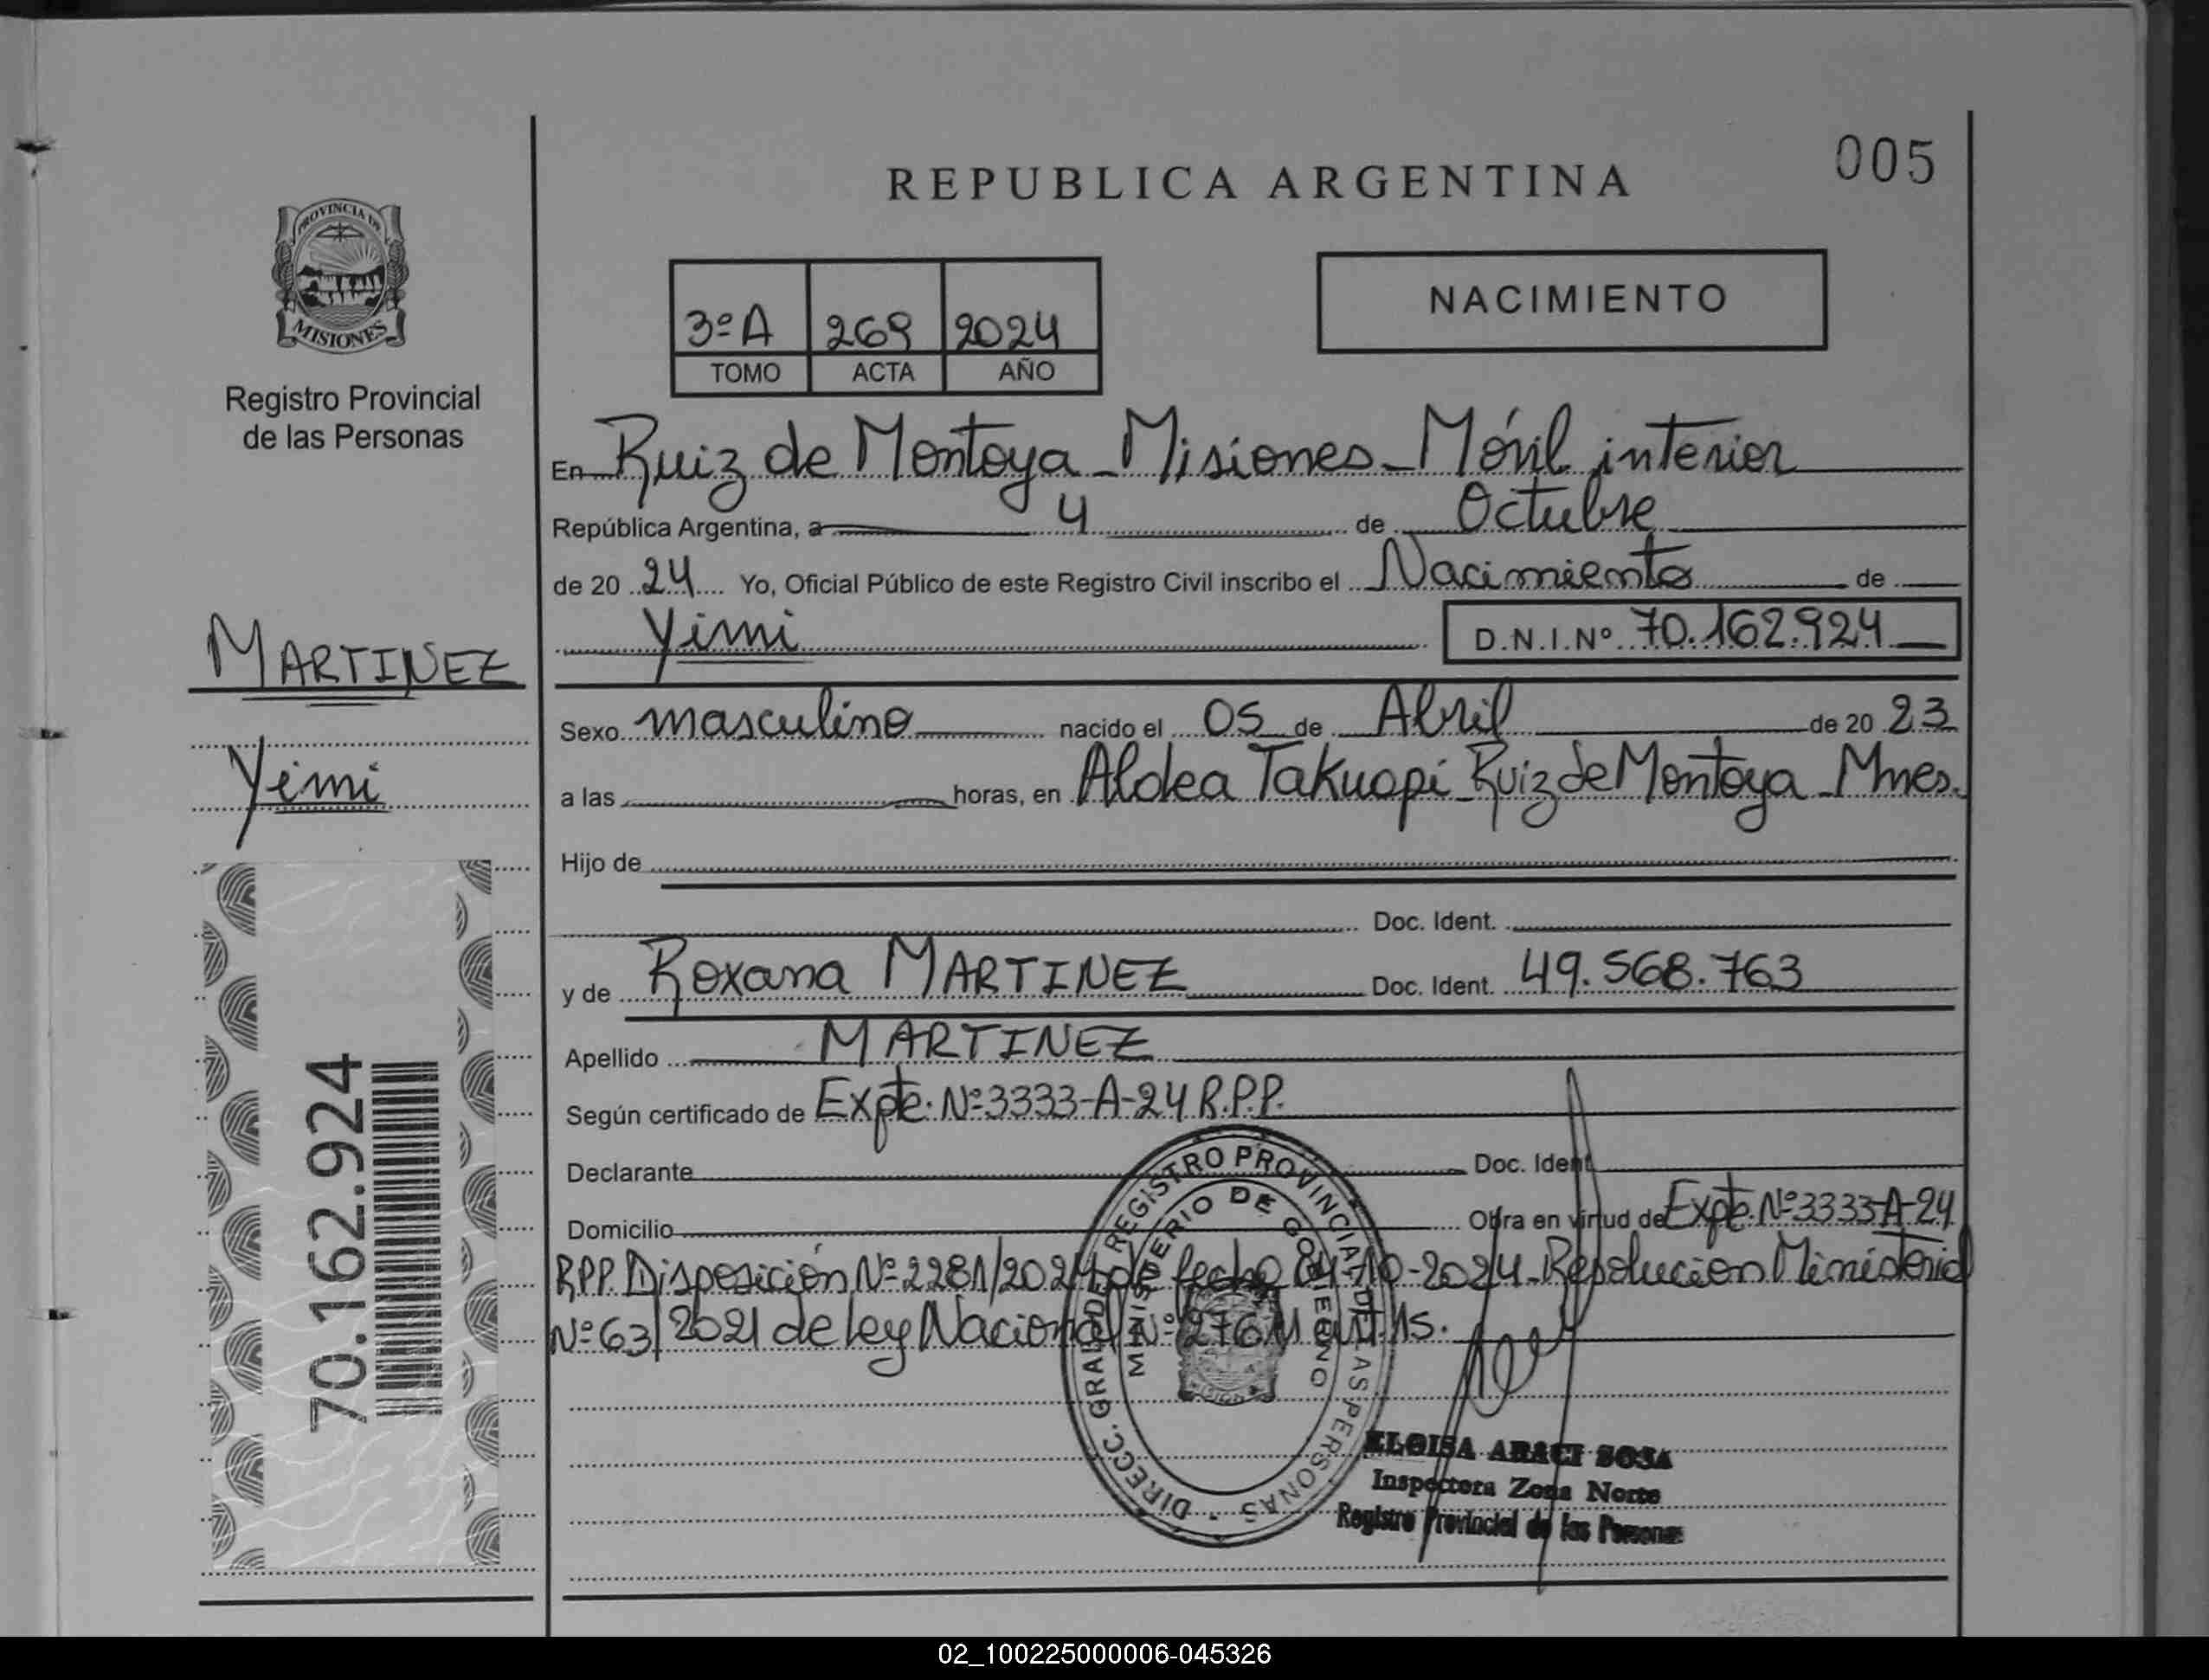 005
REPUBLICA ARGENTINA
PROVINCIA DE
MISIONES
Registro Provincial
de las Personas
NACIMIENTO
3ºA 269 2024
TOMO ACTA AÑO
En Ruiz de Montoya - Misiones - Móvil interior
República Argentina, a 4 de Octubre
de 20 24 Yo, Oficial Público de este Registro Civil inscribo el Nacimiento de
Yimi D.N.I.Nº 70.162.924
MARTINEZ
Yimi
Sexo masculino nacido el 05 de Abril de 20 23
a las horas, en Aldea Takuapi - Ruiz de Montoya - Mnes.
Hijo de
Doc. Ident.
y de Roxana MARTINEZ Doc. Ident. 49.568.763
Apellido MARTINEZ
Según certificado de Expte. Nº 3333-A-24 R.P.P.
Declarante Doc. Ident.
Domicilio Obra en virtud de Expte. Nº 3333-A-24
RPP. Disposición Nº 2281/2024 de fecha 04-10-2024 - Resolución Ministerial
Nº 63/2021 de ley Nacional Nº 27611
70.162.924
DIRECC. GRAL. DE REGISTRO PROVINCIAL DE LAS PERSONAS
MINISTERIO DE GOBIERNO
ELOISA ARACI SOSA
Inspectora Zona Norte
Registro Provincial de las Personas
02_100225000006-045326